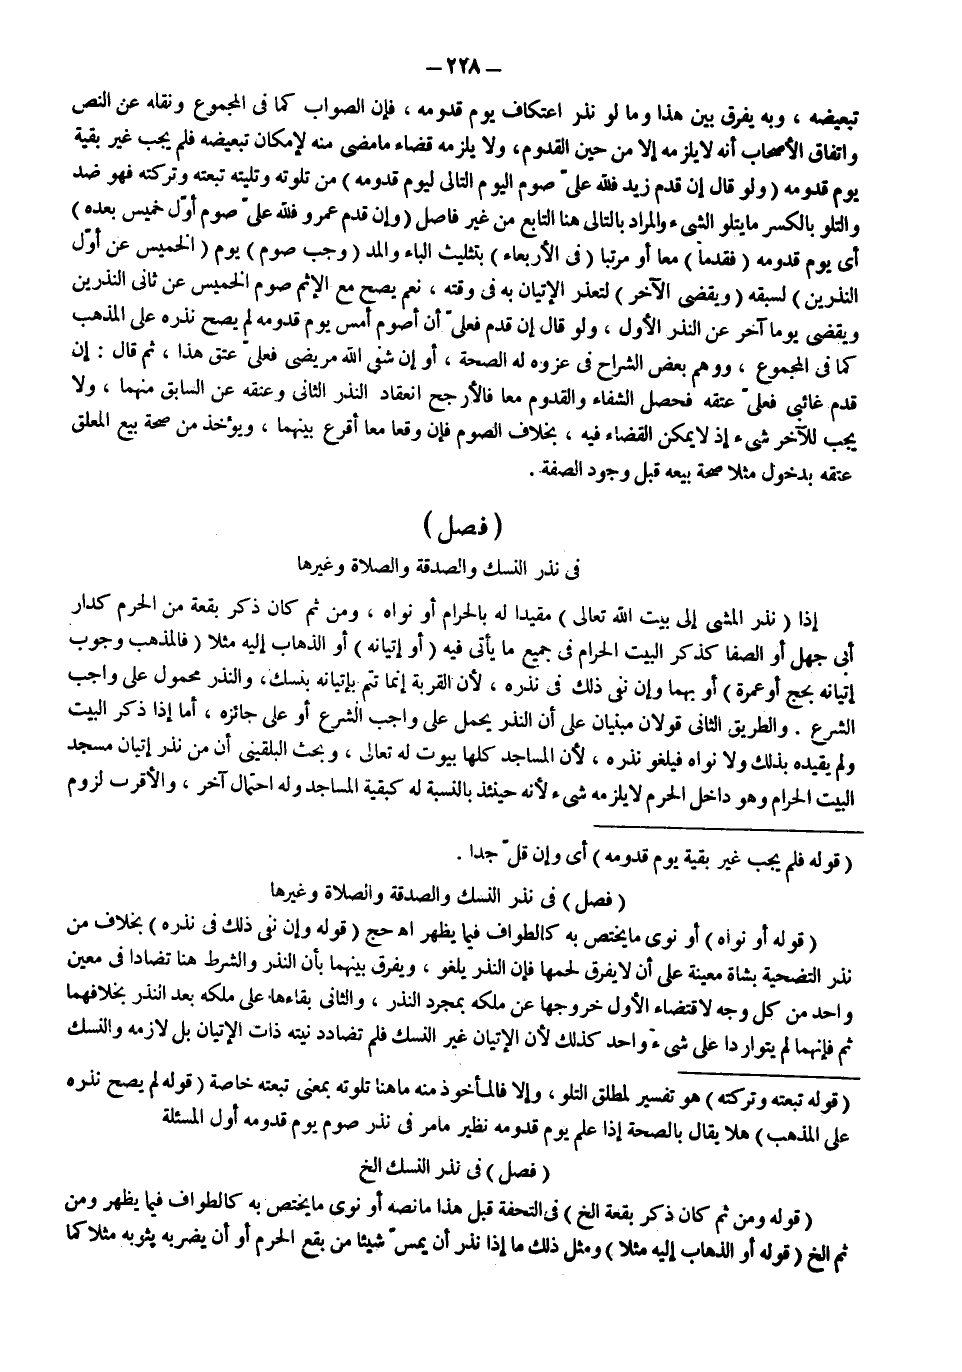 — ٢٢٨ —
تبعيضه ، وبه يفرق بين هذا وما لو نذر اعتكاف يوم قدومه ، فإن الصواب كما فى المجموع ونقله عن النص
واتفاق الأصحاب أنه لايلزمه إلا من حين القدوم، ولا يلزمه قضاء مامضى منه لإمكان تبعيضه فلم يجب غير بقية
يوم قدومه ( ولو قال إن قدم زيد فلله علىّ صوم اليوم التالى ليوم قدومه ) من تلوته وتليته تبعته وتركته فهو ضد
والتلو بالكسر مايتلو الشىء والمراد بالتالى هنا التابع من غير فاصل ( وإن قدم عمرو فلله علىّ صوم أوّل خميس بعده )
أى يوم قدومه ( فقدما ) معا أو مرتبا ( فى الأربعاء ) بتثليث الباء والمد ( وجب صوم ) يوم ( الخميس عن أوّل
النذرين ) لسبقه ( ويقضى الآخر ) لتعذر الإتيان به فى وقته ، نعم يصح مع الإثم صوم الخميس عن ثانى النذرين
ويقضى يوما آخر عن النذر الأول ، ولو قال إن قدم فعلىّ أن أصوم أمس يوم قدومه لم يصح نذره على المذهب
كما فى المجموع ، ووهم بعض الشراح فى عزوه له الصحة ، أو إن شفى الله مريضى فعلىّ عتق هذا ، ثم قال : إن
قدم غائبى فعلىّ عتقه فحصل الشفاء والقدوم معا فالأرجح انعقاد النذر الثانى وعتقه عن السابق منهما ، ولا
يجب للآخر شىء إذ لايمكن القضاء فيه ، بخلاف الصوم فإن وقعا معا أقرع بينهما ، ويؤخذ من صحة بيع المعلق
عتقه بدخول مثلا صحة بيعه قبل وجود الصفة .
( فصل )
فى نذر النسك والصدقة والصلاة وغيرها
إذا ( نذر المشى إلى بيت الله تعالى ) مقيدا له بالحرام أو نواه ، ومن ثم كان ذكر بقعة من الحرم كدار
أبى جهل أو الصفا كذكر البيت الحرام فى جميع ما يأتى فيه ( أو إتيانه ) أو الذهاب إليه مثلا ( فالمذهب وجوب
إتيانه بحج أوعمرة ) أو بهما وإن نفى ذلك فى نذره ، لأن القربة إنما تتم بإتيانه بنسك، والنذر محمول على واجب
الشرع . والطريق الثانى قولان مبنيان على أن النذر يحمل على واجب الشرع أو على جائزه ، أما إذا ذكر البيت
ولم يقيده بذلك ولا نواه فيلغو نذره ، لأن المساجد كلها بيوت له تعالى ، وبحث البلقينى أن من نذر إتيان مسجد
البيت الحرام وهو داخل الحرم لايلزمه شىء لأنه حينئذ بالنسبة له كبقية المساجد وله احتمال آخر ، والأقرب لزوم
( قوله فلم يجب غير بقية يوم قدومه ) أى وإن قلّ جدا .
( فصل ) فى نذر النسك والصدقة والصلاة وغيرها
( قوله أو نواه ) أو نوى مايختص به كالطواف فيما يظهر اه حج ( قوله وإن نفى ذلك فى نذره ) بخلاف من
نذر التضحية بشاة معينة على أن لايفرق لحمها فإن النذر يلغو ، ويفرق بينهما بأن النذر والشرط هنا تضادا فى معين
واحد من كل وجه لاقتضاء الأول خروجها عن ملكه بمجرد النذر ، والثانى بقاءها على ملكه بعد النذر بخلافهما
ثم فإنهما لم يتواردا على شىء واحد كذلك لأن الإتيان غير النسك فلم تضادد نيته ذات الإتيان بل لازمه والنسك
( قوله تبعته وتركته ) هو تفسير لمطلق التلو ، وإلا فالمأخوذ منه ماهنا تلوته بمعنى تبعته خاصة ( قوله لم يصح نذره
على المذهب ) هلا يقال بالصحة إذا علم يوم قدومه نظير مامر فى نذر صوم يوم قدومه أول المسئلة
( فصل ) فى نذر النسك الخ
( قوله ومن ثم كان ذكر بقعة الخ ) فى التحفة قبل هذا مانصه أو نوى مايختص به كالطواف فيما يظهر ومن
ثم الخ ( قوله أو الذهاب إليه مثلا ) ومثل ذلك ما إذا نذر أن يمسّ شيئا من بقع الحرم أو أن يضربه بثوبه مثلا كما